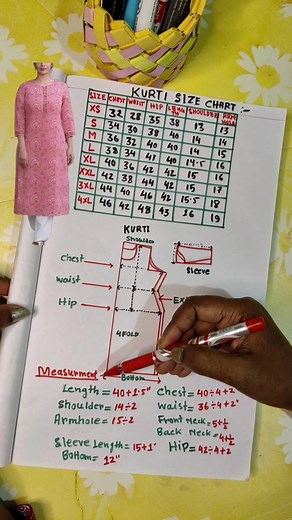 KURTI SIZE CHART :-
SIZE CHEST WAIST HIP LENGTH SHOULDER ARM HOLE
XS 32 28 35 38 13 13
S 34 30 38 40 14 14
M 36 32 40 40 14 15
L 38 34 41 40 14.5 16
XL 40 36 42 42 15 16
XXL 42 38 44 42 15 17
3XL 44 40 46 42 15.5 18
4XL 46 42 48 43 16 19
KURTI
Shoulder
Chest
Waist
Hip
Sleeve
4 FOLD
Bottom
Measurment
Length = 40+1.5"
Chest = 40÷4+2"
Shoulder = 14÷2
Waist = 36÷4+2"
Armhole = 15÷2
Front Neck = 5+½
Back Neck = 4+½
Sleeve Length = 15+1"
Hip = 42÷4+2
Bottom = 12"